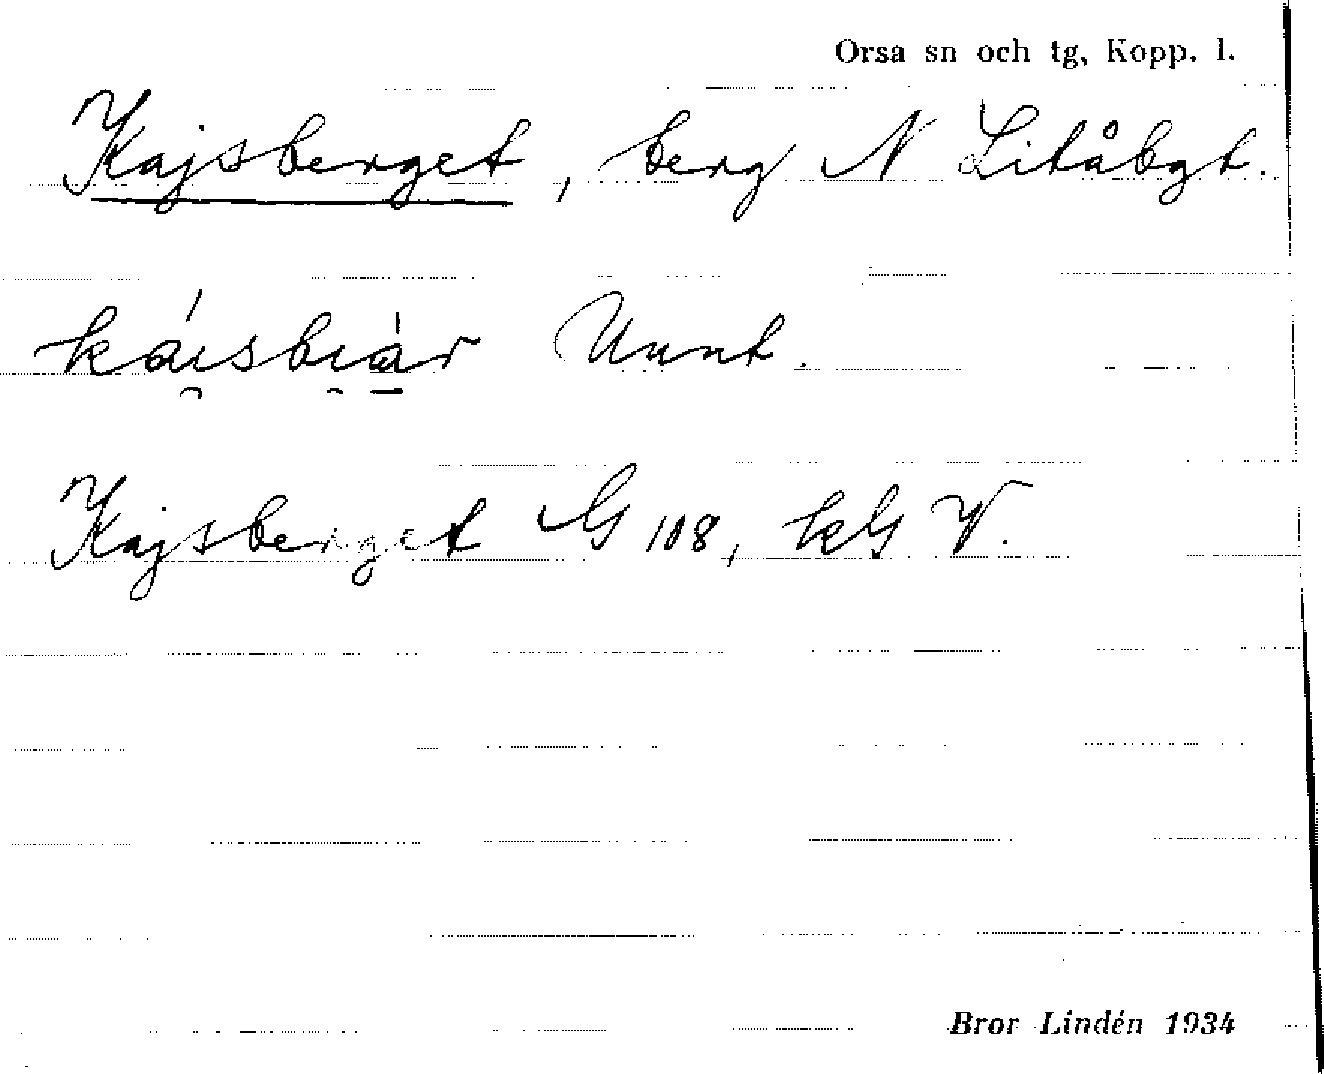 Orsa sn och tg, Kopp. l.
Kajsberget, berg N Litåbgt.
Unnt.
Kajsberget G 108, kG V.
Bror Lindén 1934